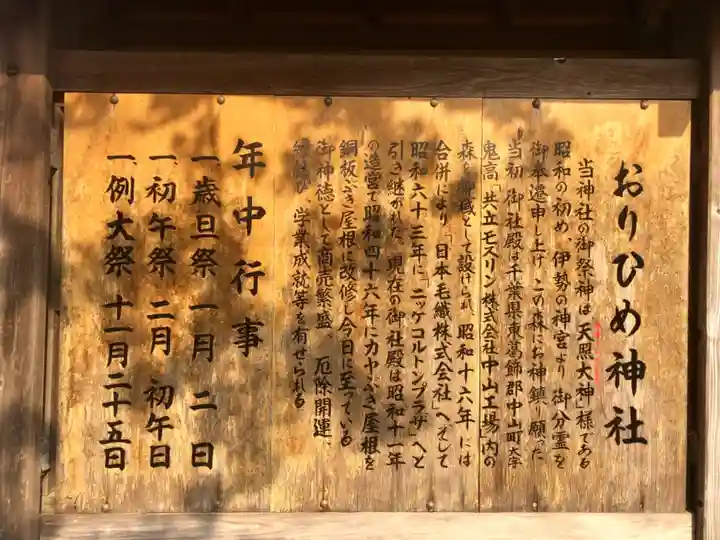 おりひめ神社
当神社の御祭神は天照大神様である
昭和の初め、伊勢の神宮より御分霊を
御奉遷申し上げ、この森にお神鎮り願った
当初御社殿は千葉県東葛飾郡中山町大字
鬼高「共立モスリン株式会社中山工場」内の
森を御域として設けられ、昭和十六年には
合併により「日本毛織株式会社」へそして
昭和六十三年に「ニッケコルトンプラザ」へと
引き継がれた。現在の御社殿は昭和十一年
の造営で昭和四十六年にカヤぶき屋根を
銅板ぶき屋根に改修し今日に至っている
御神徳として商売繁盛、厄除開運、
縁結び、学業成就等を有せられる
年中行事
一、歳旦祭 一月 二日
一、初午祭 二月 初午日
一、例大祭 十一月二十五日